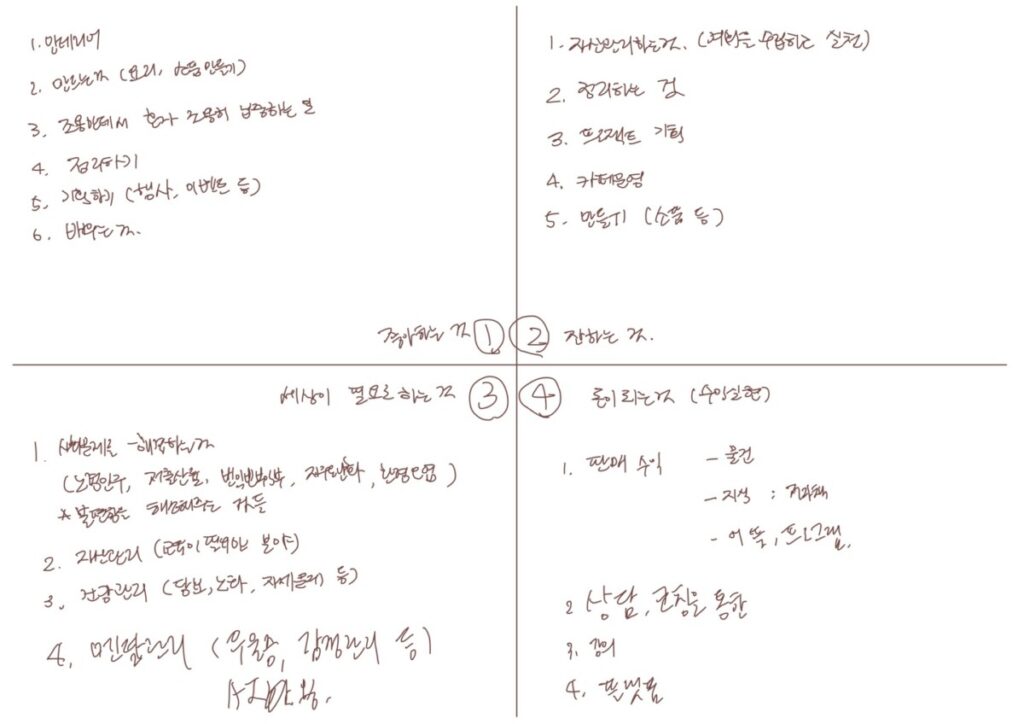 1. 인테리어
2. 만드는 것 (요리, 소품만들기)
3. 조용한데서 혼자 조용히 집중하는 일
4. 정리하기
5. 기획하기 (행사, 이벤트 등)
6. 배우는 것.
좋아하는 것 ①
1. 재산관리하는 것. (계획을 수립하고 실천)
2. 정리하는 것
3. 프로젝트 기획
4. 카페운영
5. 만들기 (소품 등)
② 잘하는 것.
세상이 필요로 하는 것 ③
1. 사회문제를 해결하는 것
(노령인구, 저출산율, 빈익빈부익부, 지구온난화, 환경오염)
* 불편함을 해소해주는 것들
2. 재산관리 (교육이 필요한 분야)
3. 건강관리 (당뇨, 노화, 자세문제 등)
4. 멘탈관리 (우울증, 감정관리 등)
④ 돈이 되는 것 (수익실현)
1. 판매 수익 - 물건
- 지식 : 전자책
- 어플, 프로그램,
2 상담, 코칭을 통한
3. 강의
4. 플랫폼